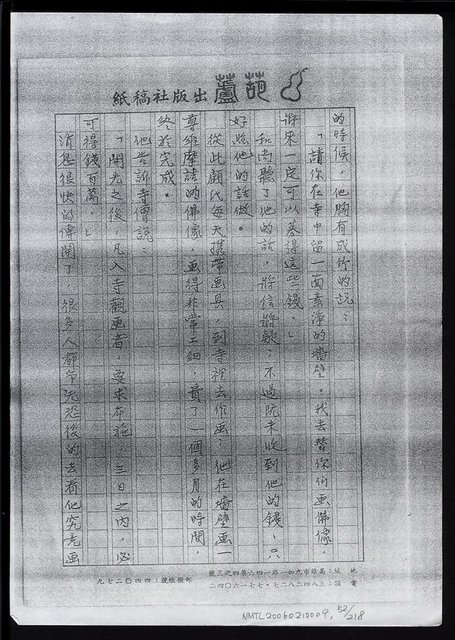 葫蘆出版社稿紙
的時候，他胸有成竹的說：
「請你在寺中留一面素淨的牆壁，我去替你們画佛像，
將來一定可以募得這些錢。」
和尚聽了他的話，將信將疑；不過既未收到他的錢，只
好照他的話做。
從此顧氏每天攜帶画具，到寺裡去作画，他在牆壁画一
尊維摩詰的佛像，画得非常工細，費了一個多月的時間，
終於完成。
他告訴寺僧說：
「開光之後，凡入寺觀画者，要求布施，三日之內，必
可得錢百萬。」
消息很快的傳開了，很多人都爭先恐後的去看他究竟画
地址：高雄市
電話：
郵撥帳號：四四〇二七九
NMTL20060210009, 52/218